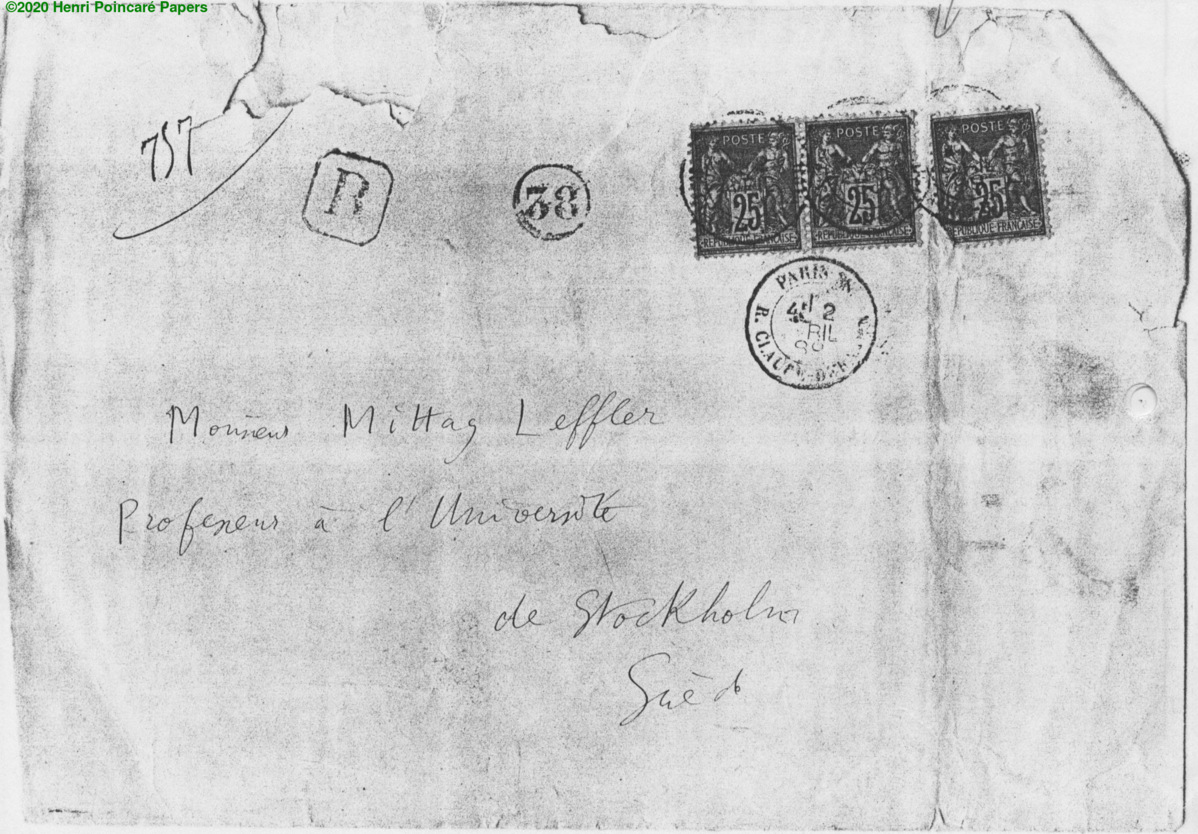 ©2020 Henri Poincaré Papers
757
R
38
POSTE
25
REPUBLIQUE FRANCAISE
POSTE
25
REPUBLIQUE FRANCAISE
POSTE
25
REPUBLIQUE FRANCAISE
PARIS
2
RIL
R. CLAUDE-
Monsieur Mittag Leffler
Professeur à l'Université
de Stockholm
Suède